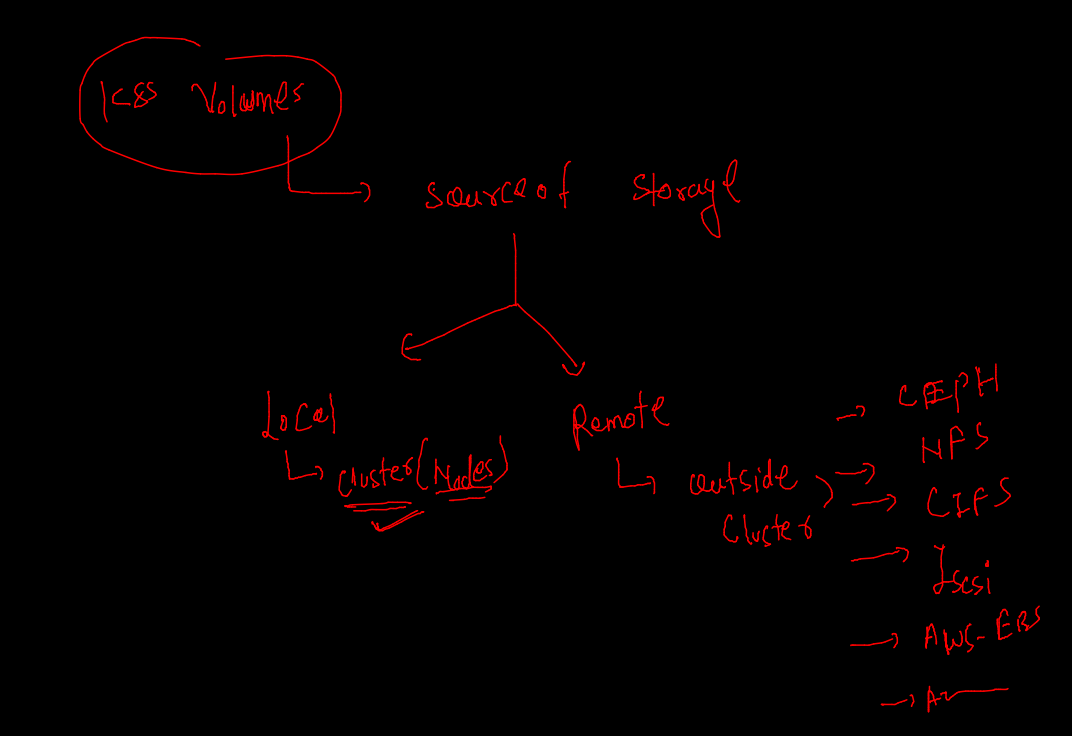 K8S Volumes
Source of Storage
Local
Cluster (Nodes)
Remote
outside
Cluster
CEPH
NFS
CIFS
Iscsi
AWS-EBS
Az